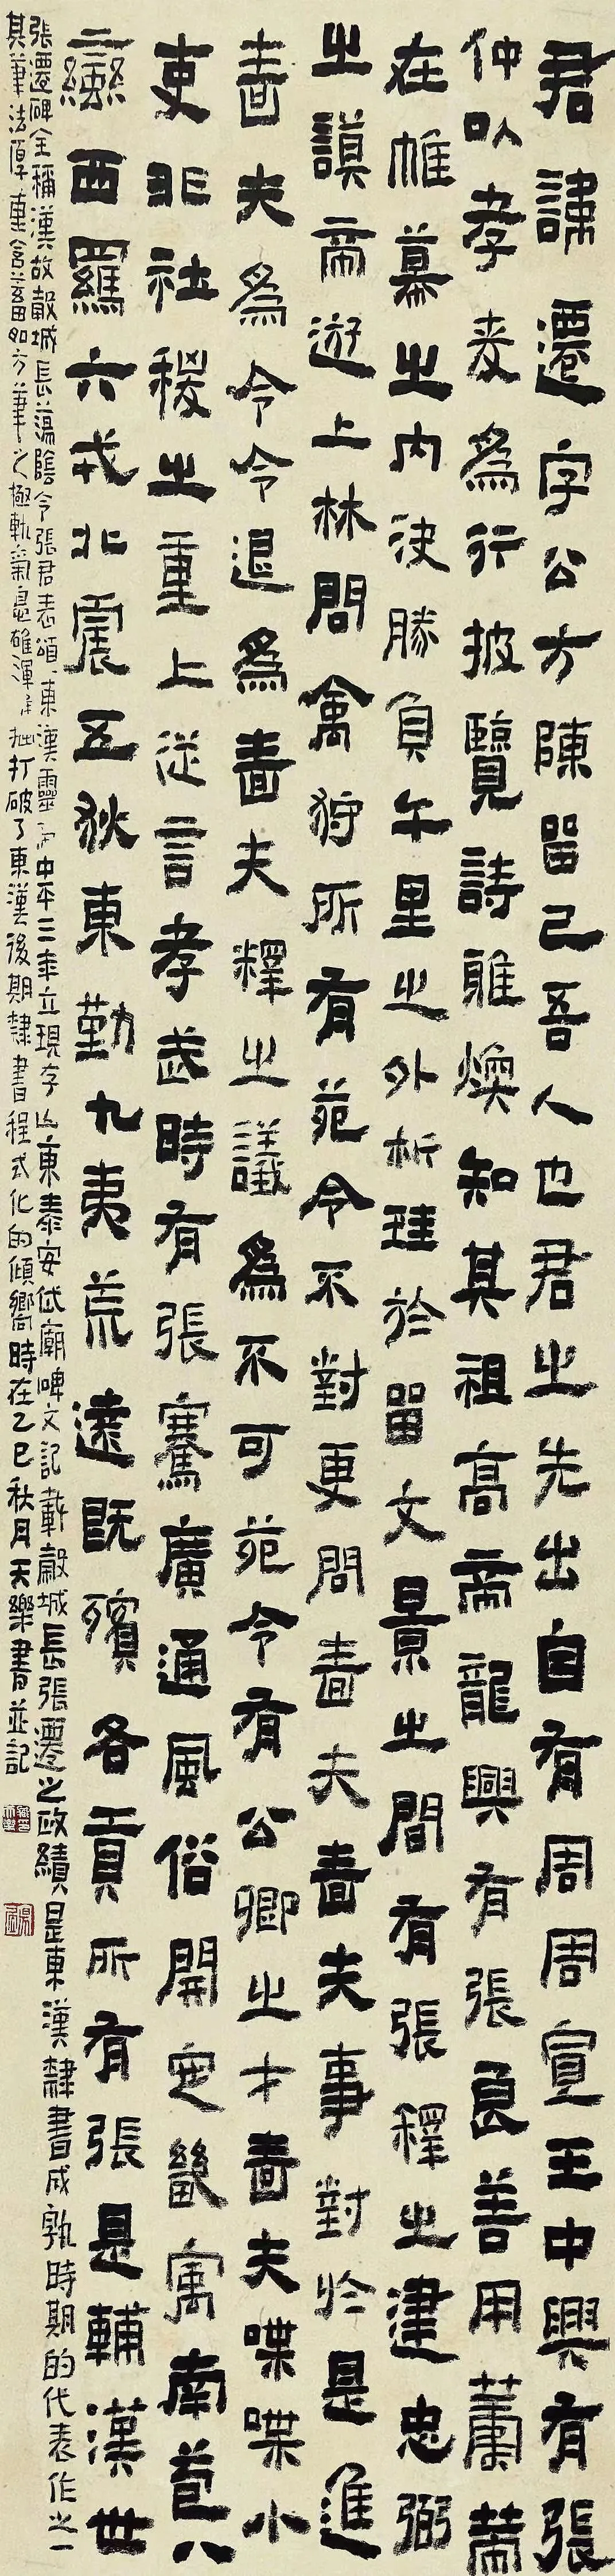 君諱遷字公方陳留己吾人也君之先出自有周周宣王中興有張
仲以孝友為行披覽詩雅煥知其祖高帝龍興有張良善用蕭䓘
在帷幕之内決勝負午里之外析珪於留文景之間有張釋之建忠弼
之謨帝遊上林問禽狩所有苑令不對更問嗇夫嗇夫事對於是進
嗇夫為令令退為嗇夫釋之議為不可苑令有公卿之才嗇夫喋喋小
吏非社稷之重上從言孝武時有張騫廣通風俗開定畿寓南苞八
蠻西羈六戎北震五狄東勤九夷荒遠既殯各貢所有張是輔漢世
張遷碑全稱漢故穀城長蕩陰令張君表頌東漢靈帝中平三年立現存山東泰安岱廟碑文記載穀城長張遷之政績是東漢隸書成孰時期的代表作之一
其筆法厚重含蓄如方筆之極軌氣息雄渾 拙打破了東漢後期隸書程式化的傾嚮時在乙巳秋月天樂書並記